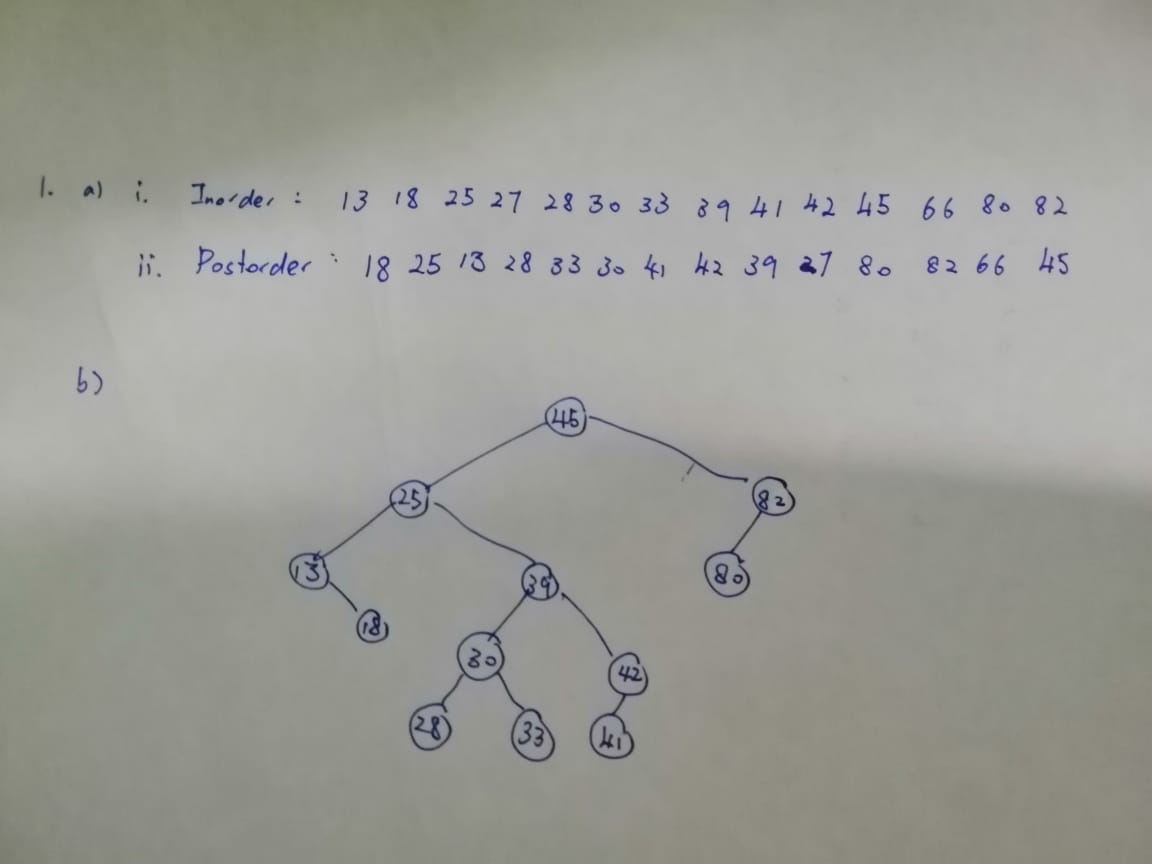 1. a) i. Inorder : 13 18 25 27 28 30 33 39 41 42 45 66 80 82
ii. Postorder : 18 25 13 28 33 30 41 42 39 27 80 82 66 45
b)
45
25 82
13 39 80
18
30 42
28 33 41